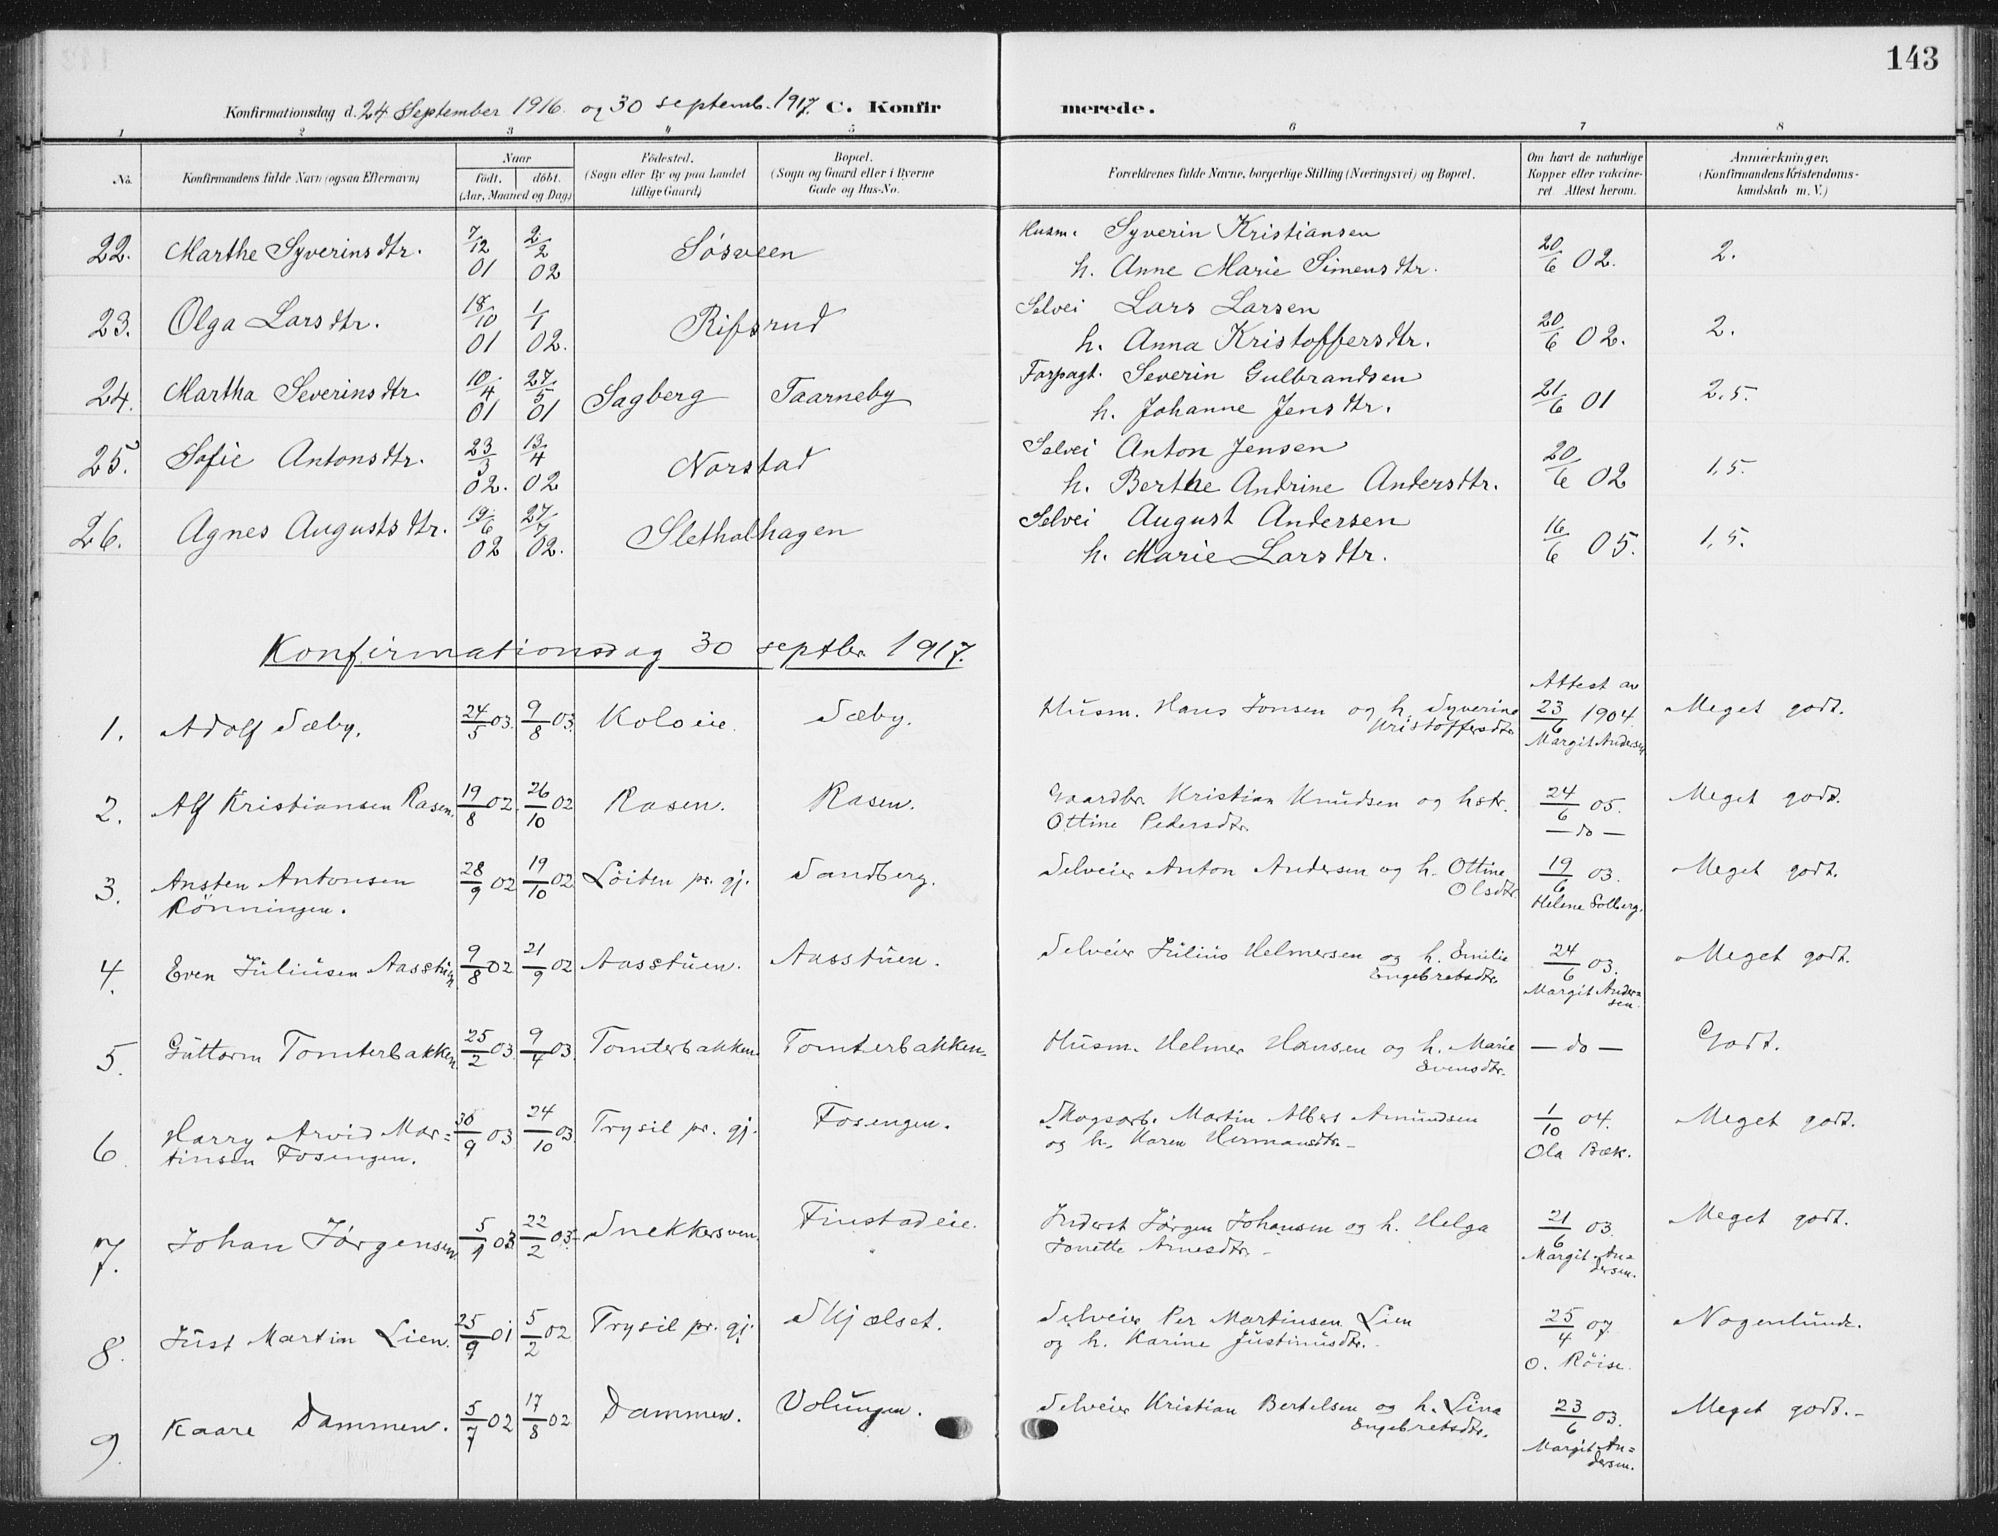 143
Konfirmationsdag d. 24 September 1916 og 30 septemb. 1917. C. Konfir merede.
1 2 3 4 5 6 7 8
No. Konfirmandens fulde Navn (ogsaa Efternavn) Naar født. døbt. (Aar, Maaned og Dag) Fødested. (Sogn eller By og paa Landet tillige Gaard) Bopæl. (Sogn og Gaard eller i Byerne Gade og Hus-No. Forældrenes fulde Navne, borgerlige Stilling (Næringsvei) og Bopæl. Om havt de naturlige Kopper eller vakcineret Attest herom. Anmærkninger. (Konfirmandens Kristendomskundskab m. V.)
22. Marthe Syverinsdtr. 7/12 01 2/2 02 Søsveen Husm. Syverin Kristiansen
h. Anne Marie Simensdtr. 20/6 02. 2.
23. Olga Larsdtr. 18/10 01 1/1 02. Rifsrud Selvei Lars Larsen
h. Anna Kristoffersdtr. 20/6 02. 2.
24. Martha Severinsdtr. 10/4 01 27/5 01 Sagberg Taarneby Forpagt. Severin Gulbrandsen
h. Johanne Jensdtr. 21/6 01 2.5.
25. Sofie Antonsdtr. 23/3 02. 13/4 02 Norstad Selvei Anton Jensen
h. Berthe Andrine Andersdtr. 20/6 02 1,5.
26. Agnes Augustsdtr. 19/6 02 27/7 02. Sletholhagen Selvei August Andersen
h. Marie Larsdtr. 16/6 05. 1,5.
Konfirmationsdag 30 septbr 1917.
1. Adolf Sæby. 24/5 03. 9/8 03. Koloeie. Sæby. Husm. Hans Jonsen og h. Syverine
Kristoffersdtr Attest av 23/6 1904. Margit Andersen Meget godt.
2. Alf Kristiansen Rasen. 19/8 02. 26/10 02 Rasen. Rasen. Gaardbr. Kristian Knudsen og hstr.
Ottine Pedersdtr. 24/6 05. — do — Meget godt.
3. Ansten Antonsen
Rønningen. 28/9 02 19/10 02 Löiten pr. gj. Sandberg. Selveier Anton Andersen og h. Ottine
Olsdtr. 19/6 03. Helene Solberg. Meget godt.
4. Even Juliusen Aasstuen 9/8 02 21/9 02 Aasstuen. Aasstuen. Selveier Julius Helmersen og h. Emilie
Engebretsdtr. 24/6 03. Margit Andersen. Meget godt.
5. Guttorm Tomterbakken 25/2 03. 9/4 03. Tomterbakken. Tomterbakken. Husm. Helmer Hansen og h. Marie
Evensdtr. — do — Godt.
6. Harry Arvid Mar=
tinsen Fosengen. 30/9 03 24/10 03. Trysil pr. gj. Fosengen. Skogsarb. Martin Albert Amundsen
og h. Karen Hermansdtr. – 1/10 04. Ola Bæk. Meget godt.
7. Johan Jørgensen 5/1 03 22/2 03. Snekkersven. Finstadeie. Inderst Jørgen Johansen og h. Helga
Jonette Arnesdtr. – 21/6 03. Margit An=
dersen. Meget godt.
8. Just Martin Lien. 25/9 01 5/2 02 Trysil pr. gj. Skjælset. Selveier Per Martinsen Lien
og h. Karine Justinusdtr. 25/4 07. O. Röise. Nogenlunde.
9. Kaare Dammen. 5/7 02 17/8 02 Dammen. Volungen. Selveier Kristian Bertelsen og h. Lina
Engebretsdtr. 23/6 03. Margit An=
dersen. Meget godt. –